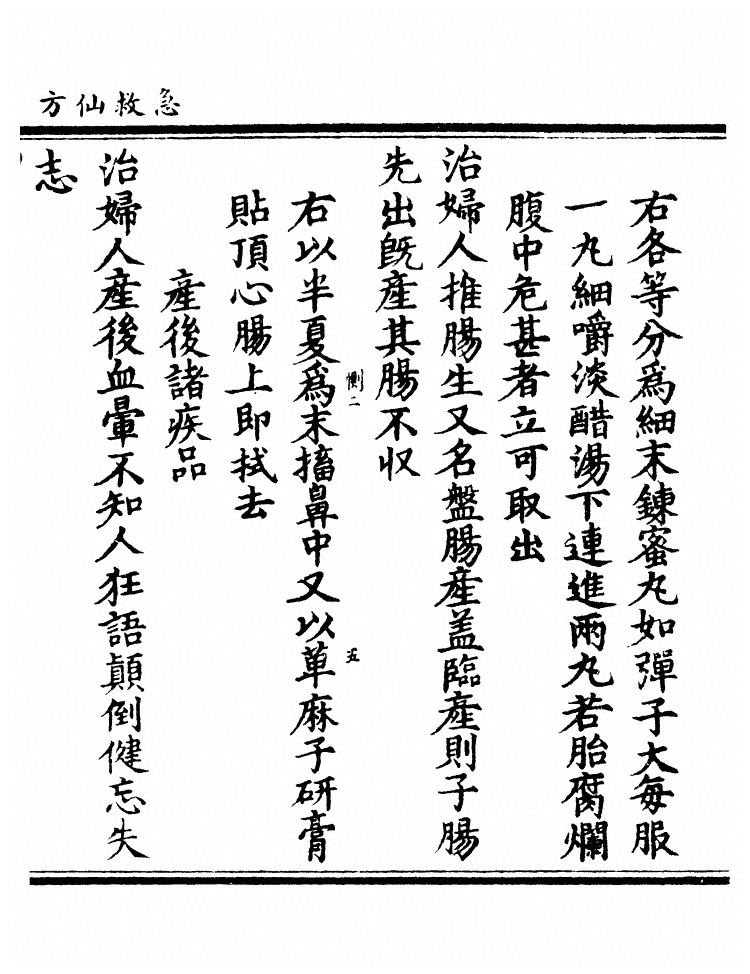 急救仙方
右各等分爲細末鍊蜜丸如彈子大每服
一丸細嚼淡醋湯下連進兩丸若胎腐爛
腹中危甚者立可取出
治婦人推腸生又名盤腸產盖臨產則子腸
先出旣產其腸不収
右以半夏爲末搐鼻中又以萆麻子研膏
惻二
五
貼頂心腸上即拭去
產後諸疾品
治婦人產後血暈不知人狂語顛倒健忘失
志